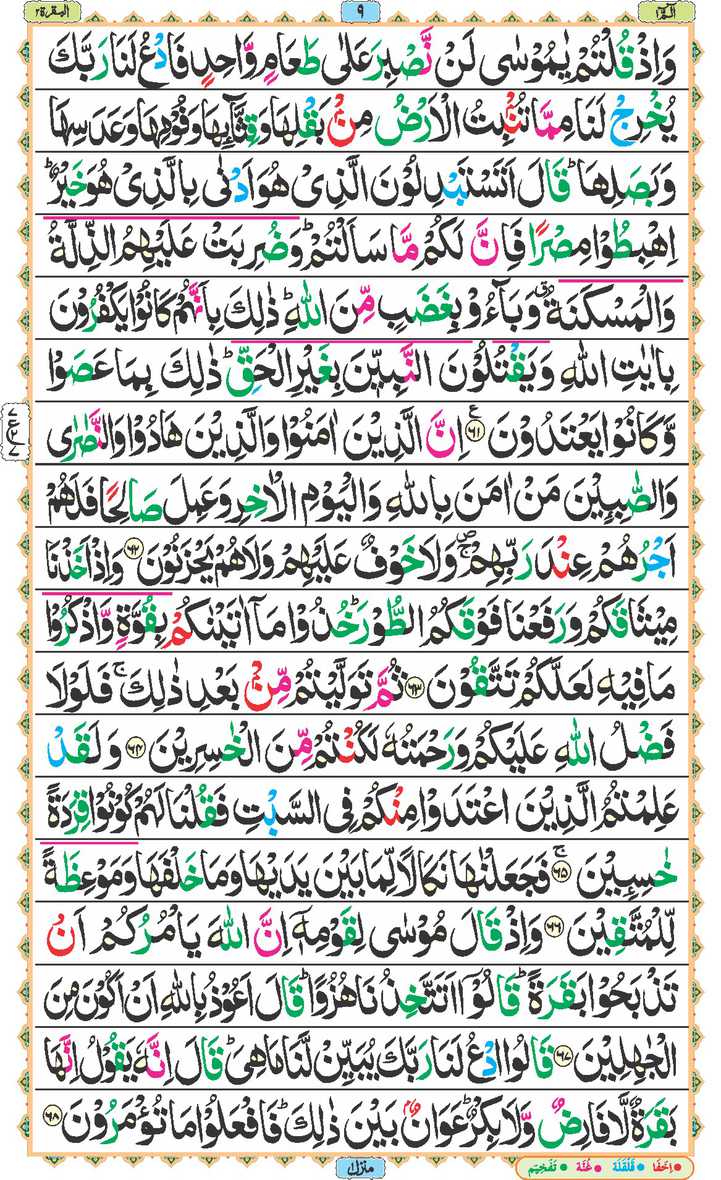 الٓمّٓ ١
٩
البقرة ٢
وَاِذْ قُلْتُمْ يٰمُوْسٰى لَنْ نَّصْبِرَ عَلٰى طَعَامٍ وَّاحِدٍ فَادْعُ لَنَا رَبَّكَ
يُخْرِجْ لَنَا مِمَّا تُنْۢبِتُ الْاَرْضُ مِنْۢ بَقْلِهَا وَقِثَّآئِهَا وَفُوْمِهَا وَعَدَسِهَا
وَبَصَلِهَا ؕ قَالَ اَتَسْتَبْدِلُوْنَ الَّذِىْ هُوَ اَدْنٰى بِالَّذِىْ هُوَ خَيْرٌ ؕ
اِهْبِطُوْا مِصْرًا فَاِنَّ لَكُمْ مَّا سَاَلْتُمْ ؕ وَضُرِبَتْ عَلَيْهِمُ الذِّلَّةُ
وَالْمَسْكَنَةُ ۗ وَبَآءُوْ بِغَضَبٍ مِّنَ اللّٰهِ ؕ ذٰلِكَ بِاَنَّهُمْ كَانُوْا يَكْفُرُوْنَ
بِاٰيٰتِ اللّٰهِ وَيَقْتُلُوْنَ النَّبِيّٖنَ بِغَيْرِ الْحَقِّ ؕ ذٰلِكَ بِمَا عَصَوْا
وَّكَانُوْا يَعْتَدُوْنَ ﴿٦١﴾ ع اِنَّ الَّذِيْنَ اٰمَنُوْا وَالَّذِيْنَ هَادُوْا وَالنَّصٰرٰى
وَالصّٰبِـِٕيْنَ مَنْ اٰمَنَ بِاللّٰهِ وَالْيَوْمِ الْاٰخِرِ وَعَمِلَ صَالِحًا فَلَهُمْ
اَجْرُهُمْ عِنْدَ رَبِّهِمْ ۚ وَلَا خَوْفٌ عَلَيْهِمْ وَلَا هُمْ يَحْزَنُوْنَ ﴿٦٢﴾ وَاِذْ اَخَذْنَا
مِيْثَاقَكُمْ وَرَفَعْنَا فَوْقَكُمُ الطُّوْرَ ؕ خُذُوْا مَآ اٰتَيْنٰكُمْ بِقُوَّةٍ وَّاذْكُرُوْا
مَا فِيْهِ لَعَلَّكُمْ تَتَّقُوْنَ ﴿٦٣﴾ ثُمَّ تَوَلَّيْتُمْ مِّنْۢ بَعْدِ ذٰلِكَ ۚ فَلَوْلَا
فَضْلُ اللّٰهِ عَلَيْكُمْ وَرَحْمَتُهٗ لَكُنْتُمْ مِّنَ الْخٰسِرِيْنَ ﴿٦٤﴾ وَلَقَدْ
عَلِمْتُمُ الَّذِيْنَ اعْتَدَوْا مِنْكُمْ فِى السَّبْتِ فَقُلْنَا لَهُمْ كُوْنُوْا قِرَدَةً
خٰسِـِٕيْنَ ۚ ﴿٦٥﴾ فَجَعَلْنٰهَا نَكَالًا لِّمَا بَيْنَ يَدَيْهَا وَمَا خَلْفَهَا وَمَوْعِظَةً
لِّلْمُتَّقِيْنَ ﴿٦٦﴾ وَاِذْ قَالَ مُوْسٰى لِقَوْمِهٖٓ اِنَّ اللّٰهَ يَاْمُرُكُمْ اَنْ
تَذْبَحُوْا بَقَرَةً ؕ قَالُوْٓا اَتَتَّخِذُنَا هُزُوًا ؕ قَالَ اَعُوْذُ بِاللّٰهِ اَنْ اَكُوْنَ مِنَ
الْجٰهِلِيْنَ ﴿٦٧﴾ قَالُوا ادْعُ لَنَا رَبَّكَ يُبَيِّنْ لَّنَا مَا هِىَ ؕ قَالَ اِنَّهٗ يَقُوْلُ اِنَّهَا
بَقَرَةٌ لَّا فَارِضٌ وَّلَا بِكْرٌ ؕ عَوَانٌۢ بَيْنَ ذٰلِكَ ؕ فَافْعَلُوْا مَا تُؤْمَرُوْنَ ﴿٦٨﴾
منزل ١
• اِخفَا • قَلْقَلَة • غُنَّة • تَفْخِيْم